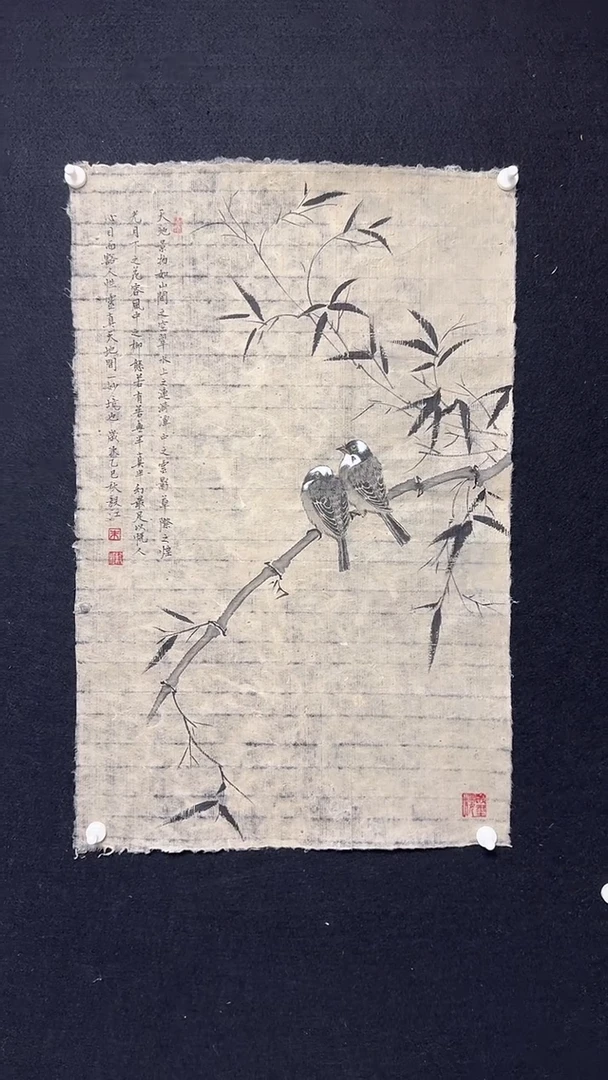 天地景物如山間之空翠水上之漣漪潭中之雲影草際之煙
光月下之花容風中之柳態若有若無半真半幻最足以悅人
心目而豁人性靈真天地間一妙境也 歲乙巳秋